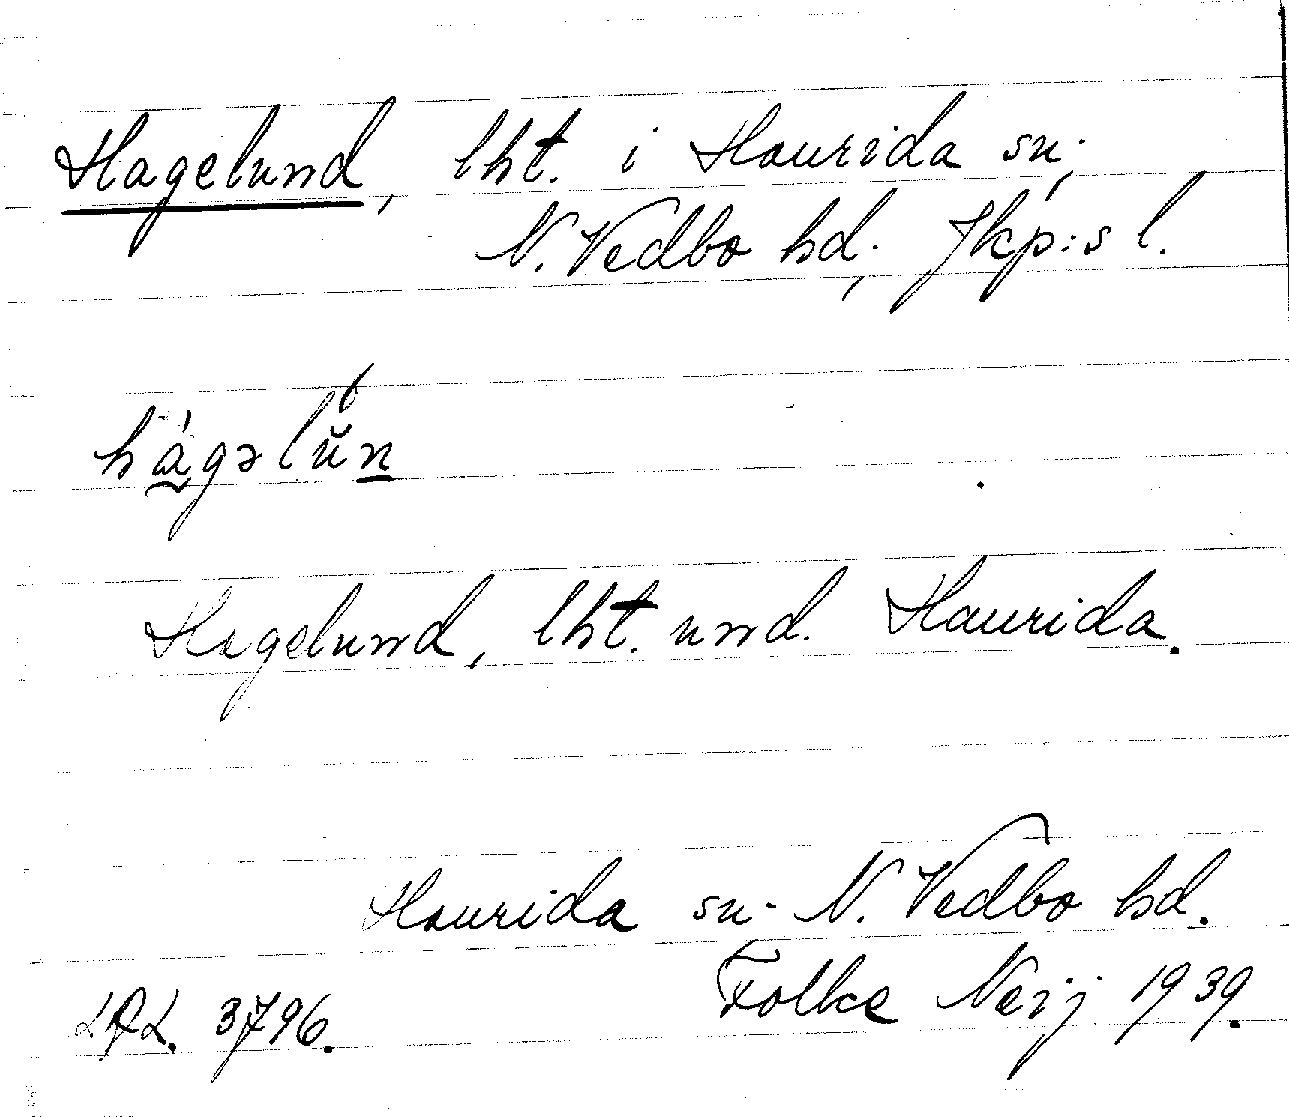 Hagelund, lht. i Haurida sn,
N. Vedbo hd, Jkp:s l.
hágəlŭn
Hagelund, lht. und. Haurida.
Haurida sn. N. Vedbo hd.
Folke Neij 1939.
3796.